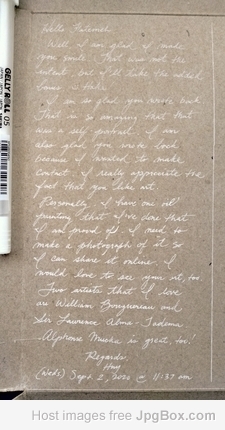 GELLY ROLL 05
Hello Fatemeh
Well I am glad I made
you smile. That was not the
intent, but I'll take the added
bonus, ha haha.
I am so glad you wrote back
That is so amazing that that
was a self portrait. I am
also glad you wrote back
because I wanted to make
contact. I really appreciate the
fact that you like art.
Personally, I have one oil
painting that I've done that
I am proud of. I need to
make a photograph of it so
I can share it online. I
would love to see your art, too.
Two artists that I love
are William Bouguereau and
Sir Lawrence Alma-Tadema
Alphonse Mucha is great, too!
Regards,
(Weds.) Sept. 2, 2020 @ 11:37 am
Host images free at JpgBox.com